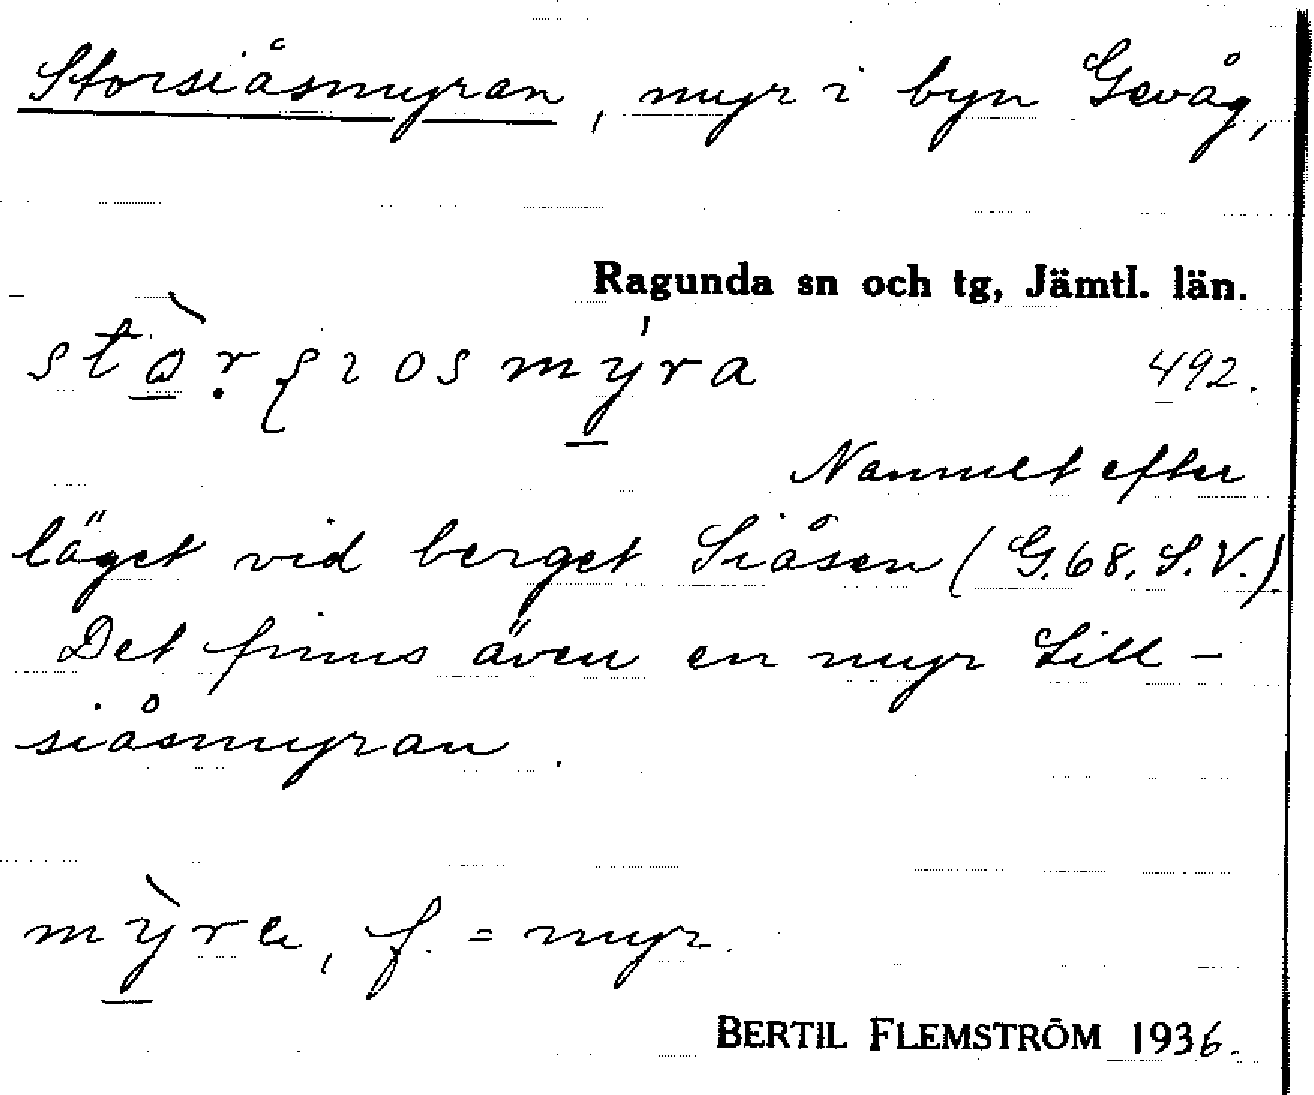 Storsiåsmyran, myr i byn Gevåg,
Ragunda sn och tg, Jämtl. län.
492.
Namnet efter
läget vid berget Siåsen (G.68. S.V.).
Det finns även en myr Lill-
siåsmyran.
f. = myr.
BERTIL FLEMSTRÖM 1936.